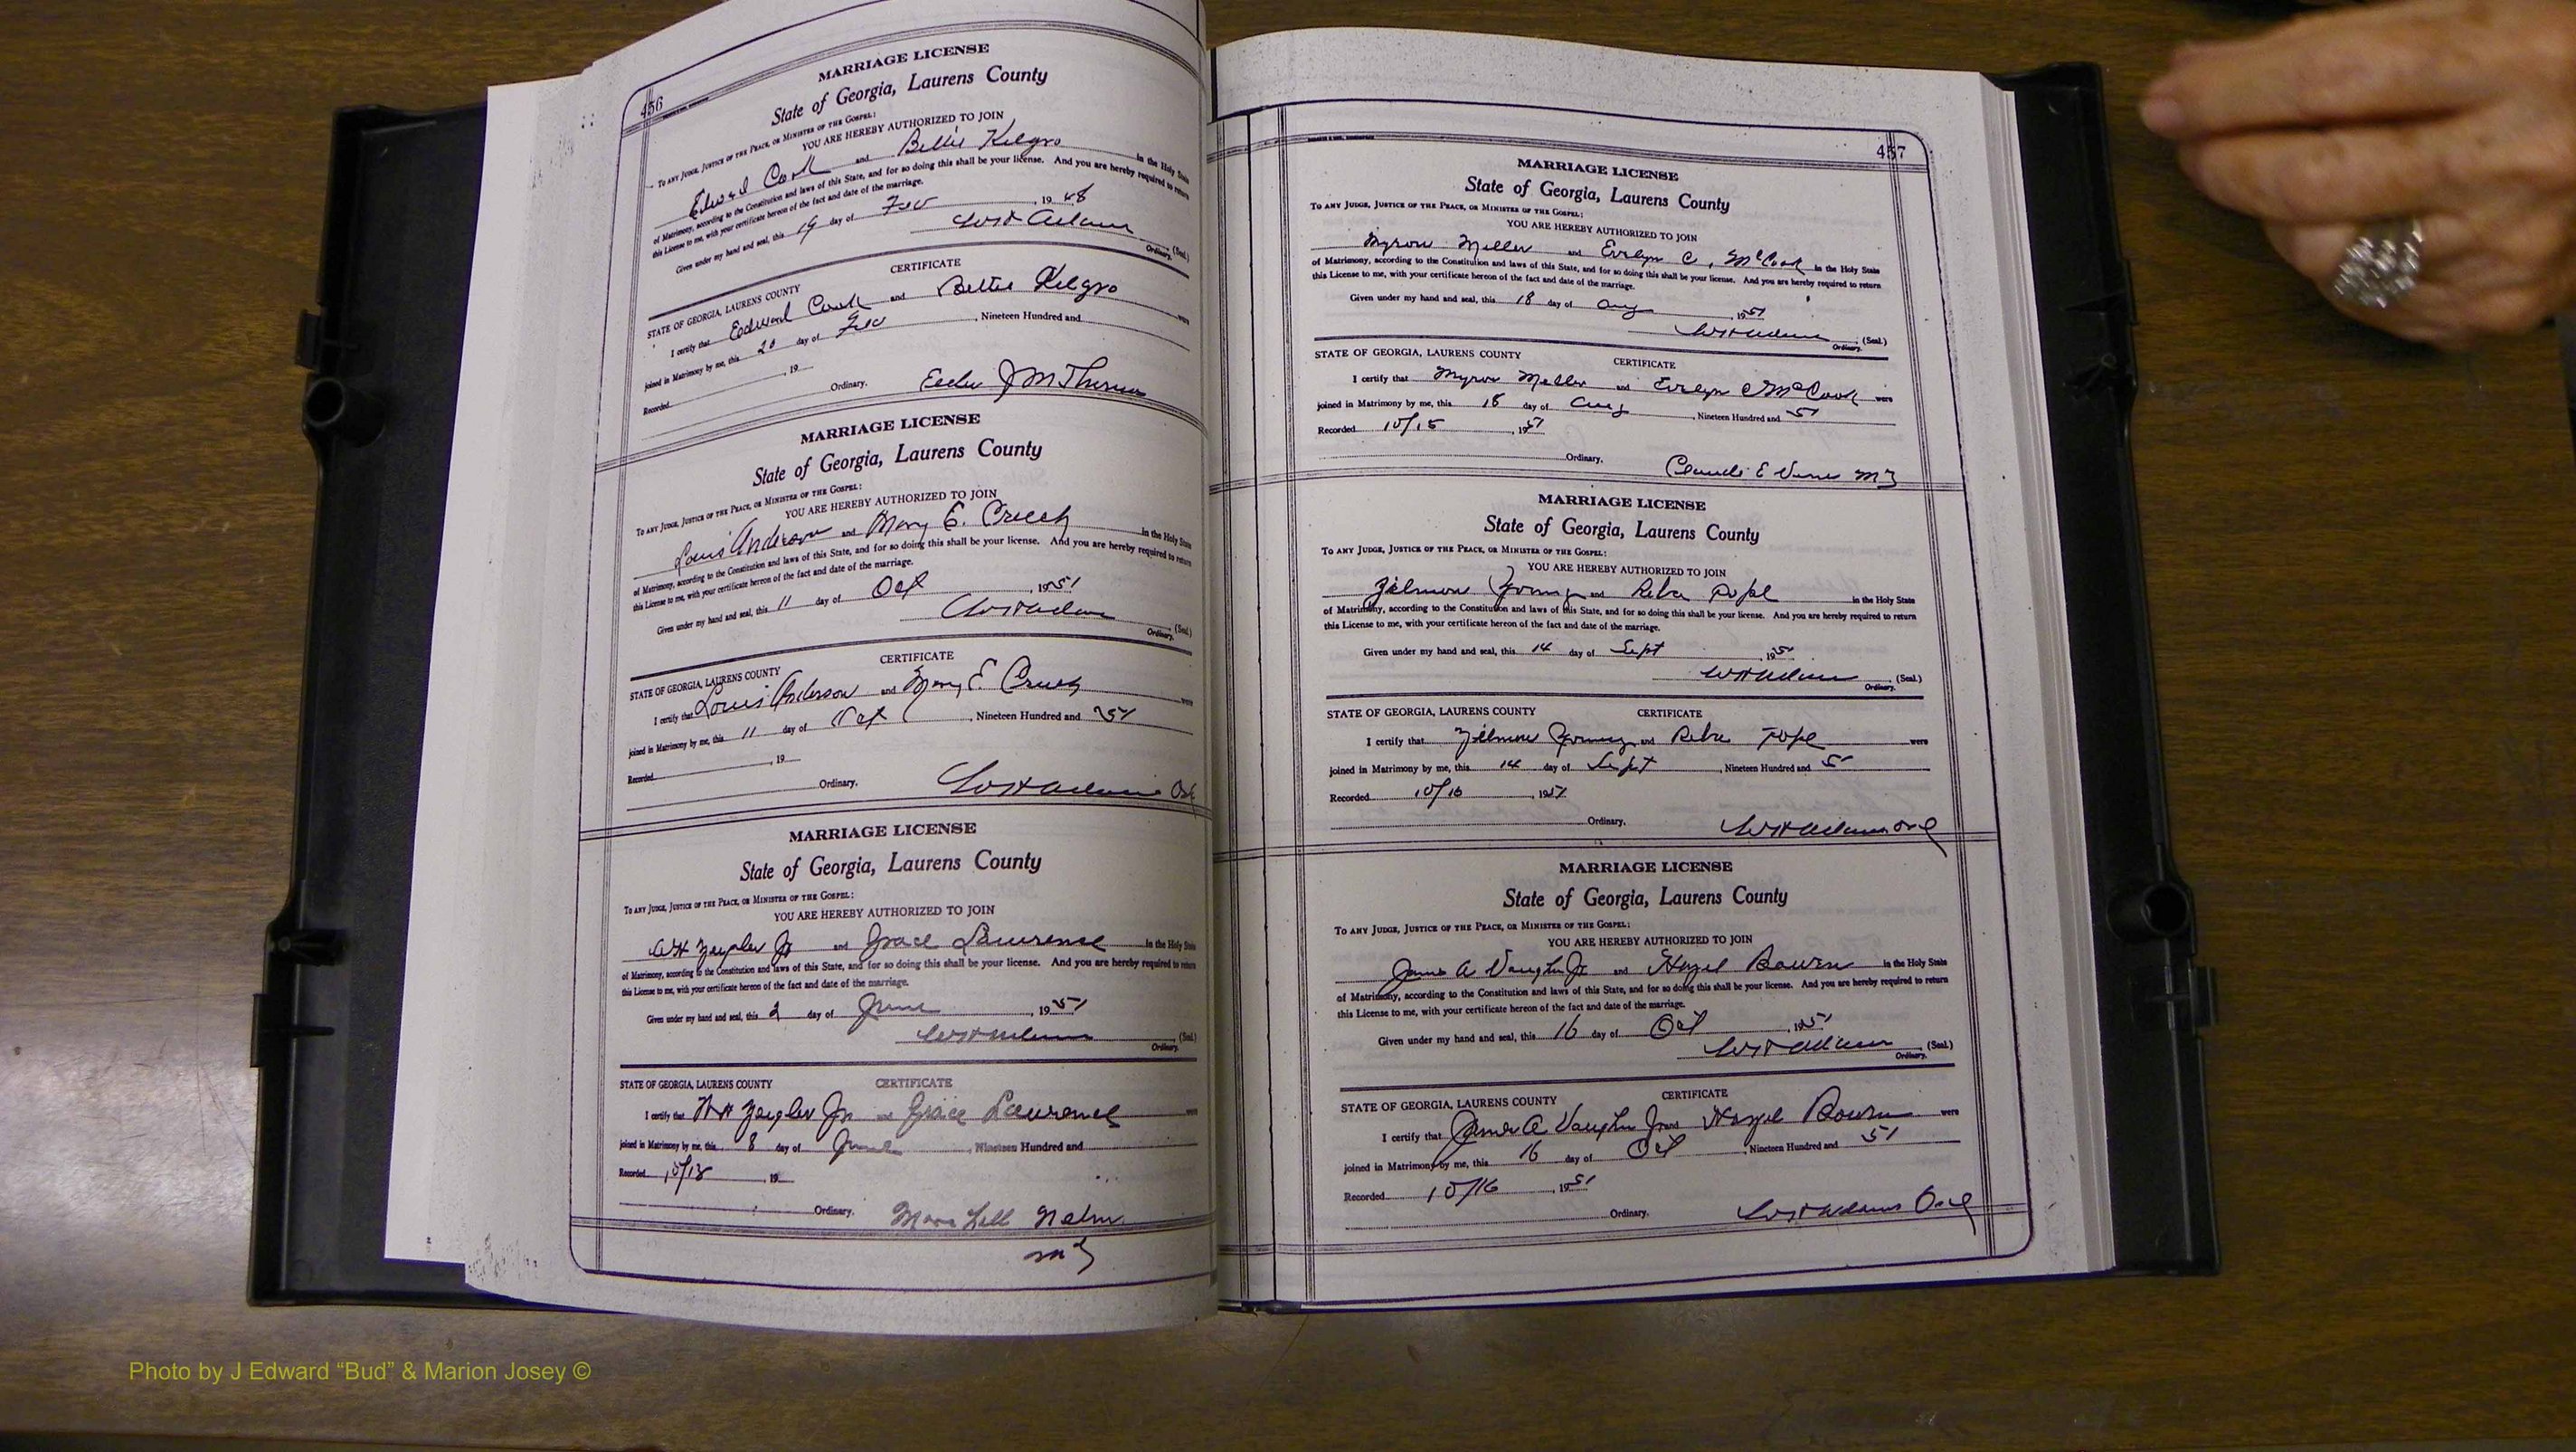 456
MARRIAGE LICENSE
State of Georgia, Laurens County
To ANY JUDGE, JUSTICE OF THE PEACE, OR MINISTER OF THE GOSPEL:
YOU ARE HEREBY AUTHORIZED TO JOIN
Edward Cook and Bettie Kelgro in the Holy State
of Matrimony, according to the Constitution and laws of this State, and for so doing this shall be your license. And you are hereby required to return
this License to me, with your certificate hereon of the fact and date of the marriage.
Given under my hand and seal, this 19 day of Feb, 1948
W H Adams (Seal)
Ordinary.
CERTIFICATE
STATE OF GEORGIA, LAURENS COUNTY
I certify that Edward Cook and Bettie Kelgro were
joined in Matrimony by me, this 20 day of Feb, Nineteen Hundred and
Recorded , 19
Ordinary. J M
MARRIAGE LICENSE
State of Georgia, Laurens County
To ANY JUDGE, JUSTICE OF THE PEACE, OR MINISTER OF THE GOSPEL:
YOU ARE HEREBY AUTHORIZED TO JOIN
Louis Anderson and Mary E. Creech in the Holy State
of Matrimony, according to the Constitution and laws of this State, and for so doing this shall be your license. And you are hereby required to return
this License to me, with your certificate hereon of the fact and date of the marriage.
Given under my hand and seal, this 11 day of Oct, 1951
W H Adams (Seal)
Ordinary.
CERTIFICATE
STATE OF GEORGIA, LAURENS COUNTY
I certify that Louis Anderson and Mary E. Creech were
joined in Matrimony by me, this 11 day of Oct, Nineteen Hundred and 51
Recorded , 19
Ordinary. W H Adams Ord
MARRIAGE LICENSE
State of Georgia, Laurens County
To ANY JUDGE, JUSTICE OF THE PEACE, OR MINISTER OF THE GOSPEL:
YOU ARE HEREBY AUTHORIZED TO JOIN
W H Zeigler Jr and Grace Lawrence in the Holy State
of Matrimony, according to the Constitution and laws of this State, and for so doing this shall be your license. And you are hereby required to return
this License to me, with your certificate hereon of the fact and date of the marriage.
Given under my hand and seal, this 2 day of June, 1951
W H Adams (Seal)
Ordinary.
STATE OF GEORGIA, LAURENS COUNTY CERTIFICATE
I certify that W H Zeigler Jr and Grace Lawrence were
joined in Matrimony by me, this 8 day of June, Nineteen Hundred and
Recorded 10/13, 19
Ordinary. Nelms
M G
457
MARRIAGE LICENSE
State of Georgia, Laurens County
To ANY JUDGE, JUSTICE OF THE PEACE, OR MINISTER OF THE GOSPEL:
YOU ARE HEREBY AUTHORIZED TO JOIN
Myron Miller and Evelyn C. McCook in the Holy State
of Matrimony, according to the Constitution and laws of this State, and for so doing this shall be your license. And you are hereby required to return
this License to me, with your certificate hereon of the fact and date of the marriage.
Given under my hand and seal, this 18 day of Aug, 1951
W H Adams (Seal)
Ordinary.
STATE OF GEORGIA, LAURENS COUNTY CERTIFICATE
I certify that Myron Miller and Evelyn C McCook were
joined in Matrimony by me, this 18 day of Aug, Nineteen Hundred and 51
Recorded 10/15, 1951
Ordinary. Claude E M G
MARRIAGE LICENSE
State of Georgia, Laurens County
To ANY JUDGE, JUSTICE OF THE PEACE, OR MINISTER OF THE GOSPEL:
YOU ARE HEREBY AUTHORIZED TO JOIN
Young and Reba Pope in the Holy State
of Matrimony, according to the Constitution and laws of this State, and for so doing this shall be your license. And you are hereby required to return
this License to me, with your certificate hereon of the fact and date of the marriage.
Given under my hand and seal, this 14 day of Sept, 1951
W H Adams (Seal)
Ordinary.
STATE OF GEORGIA, LAURENS COUNTY CERTIFICATE
I certify that Young and Reba Pope were
joined in Matrimony by me, this 14 day of Sept, Nineteen Hundred and 51
Recorded 10/16, 1951
Ordinary. W H Adams Ord
MARRIAGE LICENSE
State of Georgia, Laurens County
To ANY JUDGE, JUSTICE OF THE PEACE, OR MINISTER OF THE GOSPEL:
YOU ARE HEREBY AUTHORIZED TO JOIN
James A Vaughn Jr and Hazel Bourn in the Holy State
of Matrimony, according to the Constitution and laws of this State, and for so doing this shall be your license. And you are hereby required to return
this License to me, with your certificate hereon of the fact and date of the marriage.
Given under my hand and seal, this 16 day of Oct, 1951
W H Adams (Seal)
Ordinary.
STATE OF GEORGIA, LAURENS COUNTY CERTIFICATE
I certify that James A Vaughn Jr and Hazel Bourn were
joined in Matrimony by me, this 16 day of Oct, Nineteen Hundred and 51
Recorded 10/16, 1951
Ordinary. W H Adams Ord
Photo by J Edward “Bud” & Marion Josey ©